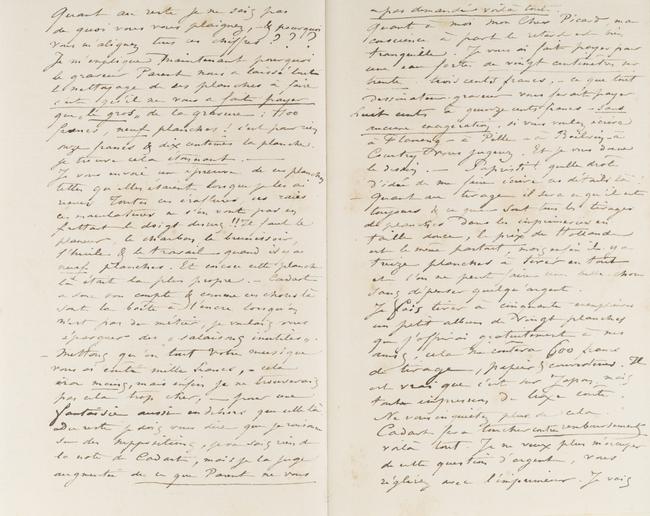 Quant au reste je ne sais pas
de quoi vous vous plaignez, & pourquoi
vous m'alignez tous ces chiffres ? ? ?
Je m'explique maintenant pourquoi
le graveur Parent nous a laissé tout
le nettoyage de ses planches à faire
c'est qu'il ne vous a fait payer
que le gros de la gravure : 100
francs, neuf planches ! c'est pour rien
onze francs & dix centimes la planche.
je trouve cela étonnant. —
Je vous envoie une épreuve de ces planches
telles qu'elles étaient lorsque je les ai
reçues toutes ces éraflures ces raies
ces maculatures ne s'en vont pas en
frottant le doigt dessus !! Il faut le
planeur, le charbon, le brunissoir,
l'huile & le travail quand il y a
neuf planches. Et encore cette planche
là était la plus propre. — Cadart
a donc son compte & comme ces choses là
sont la boîte à l'encre lorsqu'on
n'est pas du métier, je voulais vous
épargner des "salaisons inutiles".
— Mettons qu'en tout votre musique
vous ai coûté mille francs, — cela
sera moins, mais enfin je ne trouverais
pas cela trop cher, — pour une
fantaisie aussi en dehors que celle là
au reste je dois vous dire que je raisonne
sur des suppositions, je ne sais rien de
la note de Cadart, mais je la juge
augmentée de ce que Parent ne vous
a pas demandé voilà tout.
Quant à moi mon cher Picard ma
conscience à part le retard est bien
tranquille. Je vous ai fait payer pour
une eau forte de vingt centimètres sur
trente trois cents francs, — ce que tout
dessinateur graveur vous ferait payer
huit cents à quinze cents francs — sans
aucune exagération, si vous voulez écrivez
à Flameng — à Pille — à Boilvin — à
Courtry & vous jugerez. Et je vous donne
le dessin. — Sapristi ! quelle drôle
d'idée de me faire écrire ces détails là !
— Quant au tirage il sera ce qu'il est
toujours & ce que sont tous les tirages
de planches dans les imprimeries en
taille douce, le prix du Hollande
est le même partout mais quand il y a
treize planches à tirer en tout
et l'on ne peut faire une telle chose
sans dépenser quelqu'argent.
Je fais tirer à cinquante exemplaires
un petit album de vingt planches
que j'offrirai gratuitement à mes
amis, cela me coûtera 600 francs
de tirage, papier & couvertures. Il
est vrai que c'est sur Japon, mais
toutes impressions de luxe coûte.
Ne vous inquiétez plus de cela.
Cadart fera toucher contre remboursement
voilà tout. Je ne veux plus m'occuper
de cette question d'argent, vous
réglerez avec l'imprimeur. Je vais